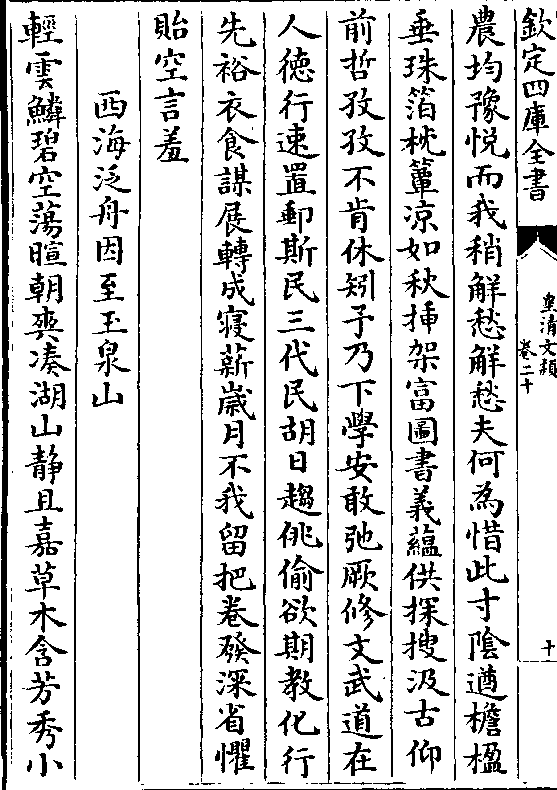 欽定四庫全書
皇清文穎
卷二十
十
農均豫悦而我稍解愁解愁夫何為惜此寸陰遒檐楹
垂珠箔枕簟凉如秋揷架富圖書義藴供探搜汲古仰
前哲孜孜不肯休矧予乃下學安敢弛厥修文武道在
人徳行速置郵斯民三代民胡日趨佻偷欲期教化行
先裕衣食謀展轉成寝薪嵗月不我留把卷發深省懼
貽空言羞
西海泛舟因至玉泉山
輕雲鱗碧空蕩暄朝爽凑湖山静且嘉草木含芳秀小